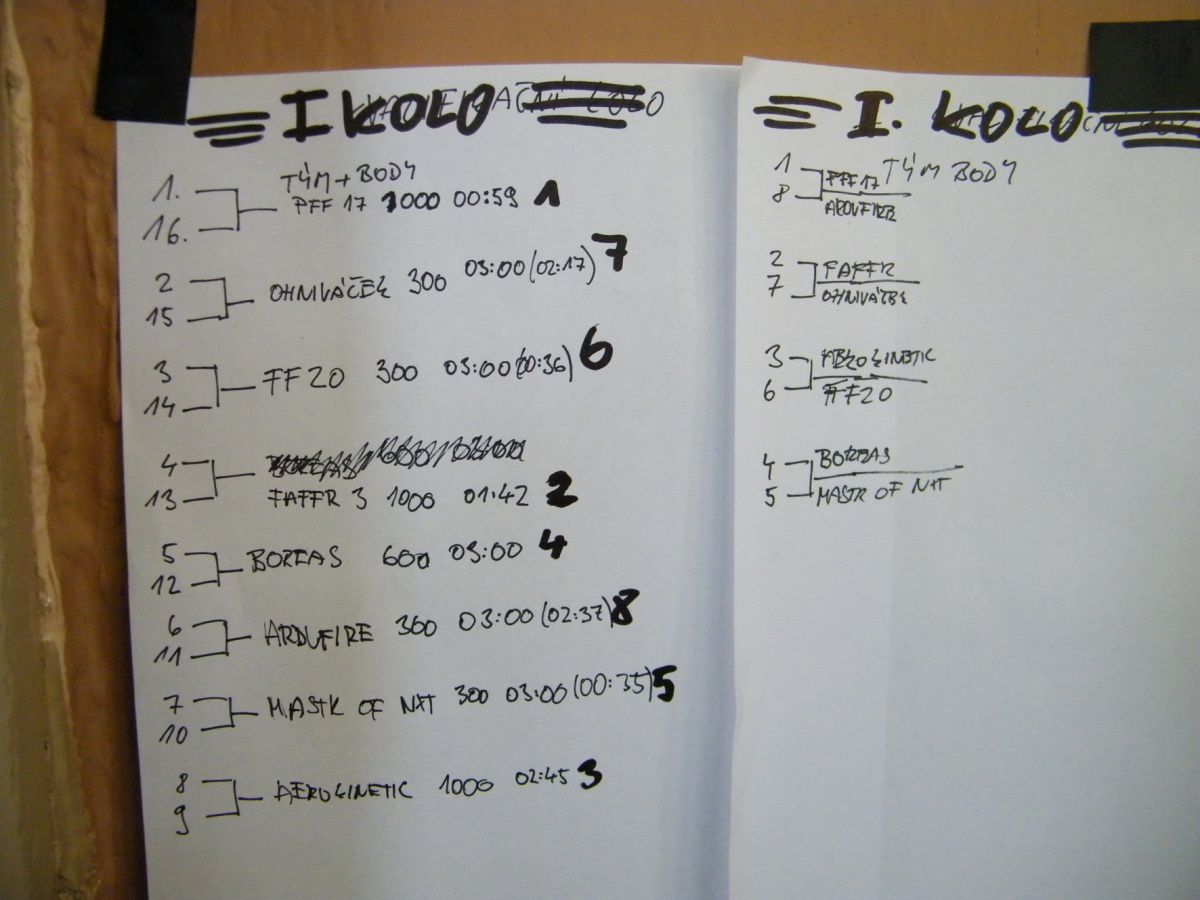 I KOLO
TÝM + BODY
1.
PFF 17 1000 00:59 1
16.
2
OHNIVÁČEK 300 03:00 (02:17) 7
15
3
FF 20 300 03:00 (00:36) 6
14
4
13
FAFFR 3 1000 01:42 2
5
BOREAS 600 03:00 4
12
6
ARDUFIRE 300 03:00 (02:37) 8
11
7
MASTR OF NXT 300 03:00 (00:35) 5
10
8
AEROKINETIC 1000 02:45 3
9
I. KOLO
TÝM BODY
1 PFF 17
8 ARDUFIRE
2 FAFFR
7 OHNIVÁČEK
3 AEROKINETIC
6 FF20
4 BOREAS
5 MASTR OF NXT